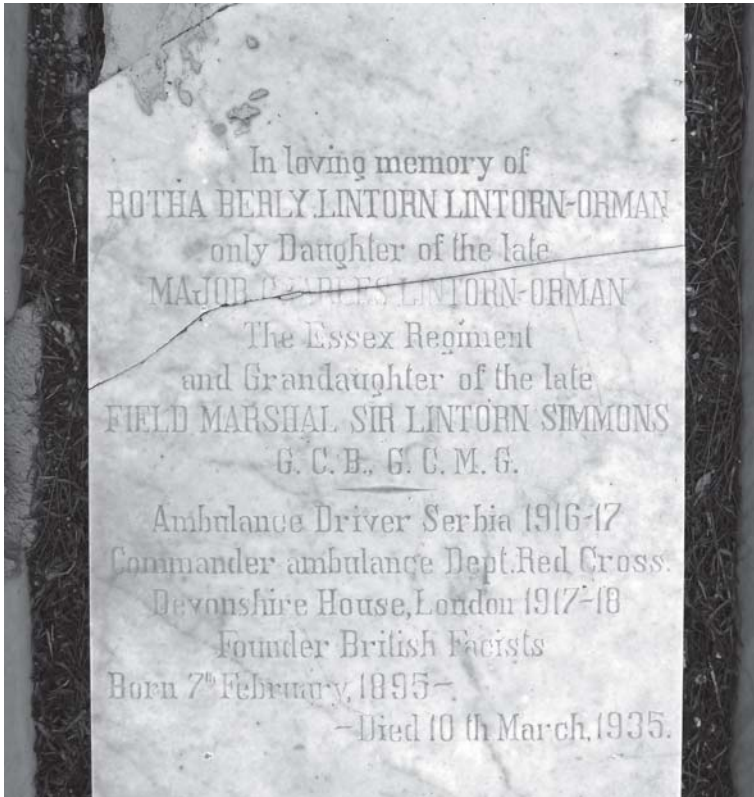 In loving memory of
ROTHA BERLY.LINTORN LINTORN-ORMAN
only Daughter of the late
MAJOR CHARLES LINTORN-ORMAN
The Essex Regiment
and Grandaughter of the late
FIELD MARSHAL SIR LINTORN SIMMONS
G. C. B., G. C. M. G.
Ambulance Driver Serbia 1916-17
Commander ambulance Dept.Red Cross.
Devonshire House,London 1917-18
Founder British Facists
Born 7th February, 1895-.
-Died 10 th March, 1935.